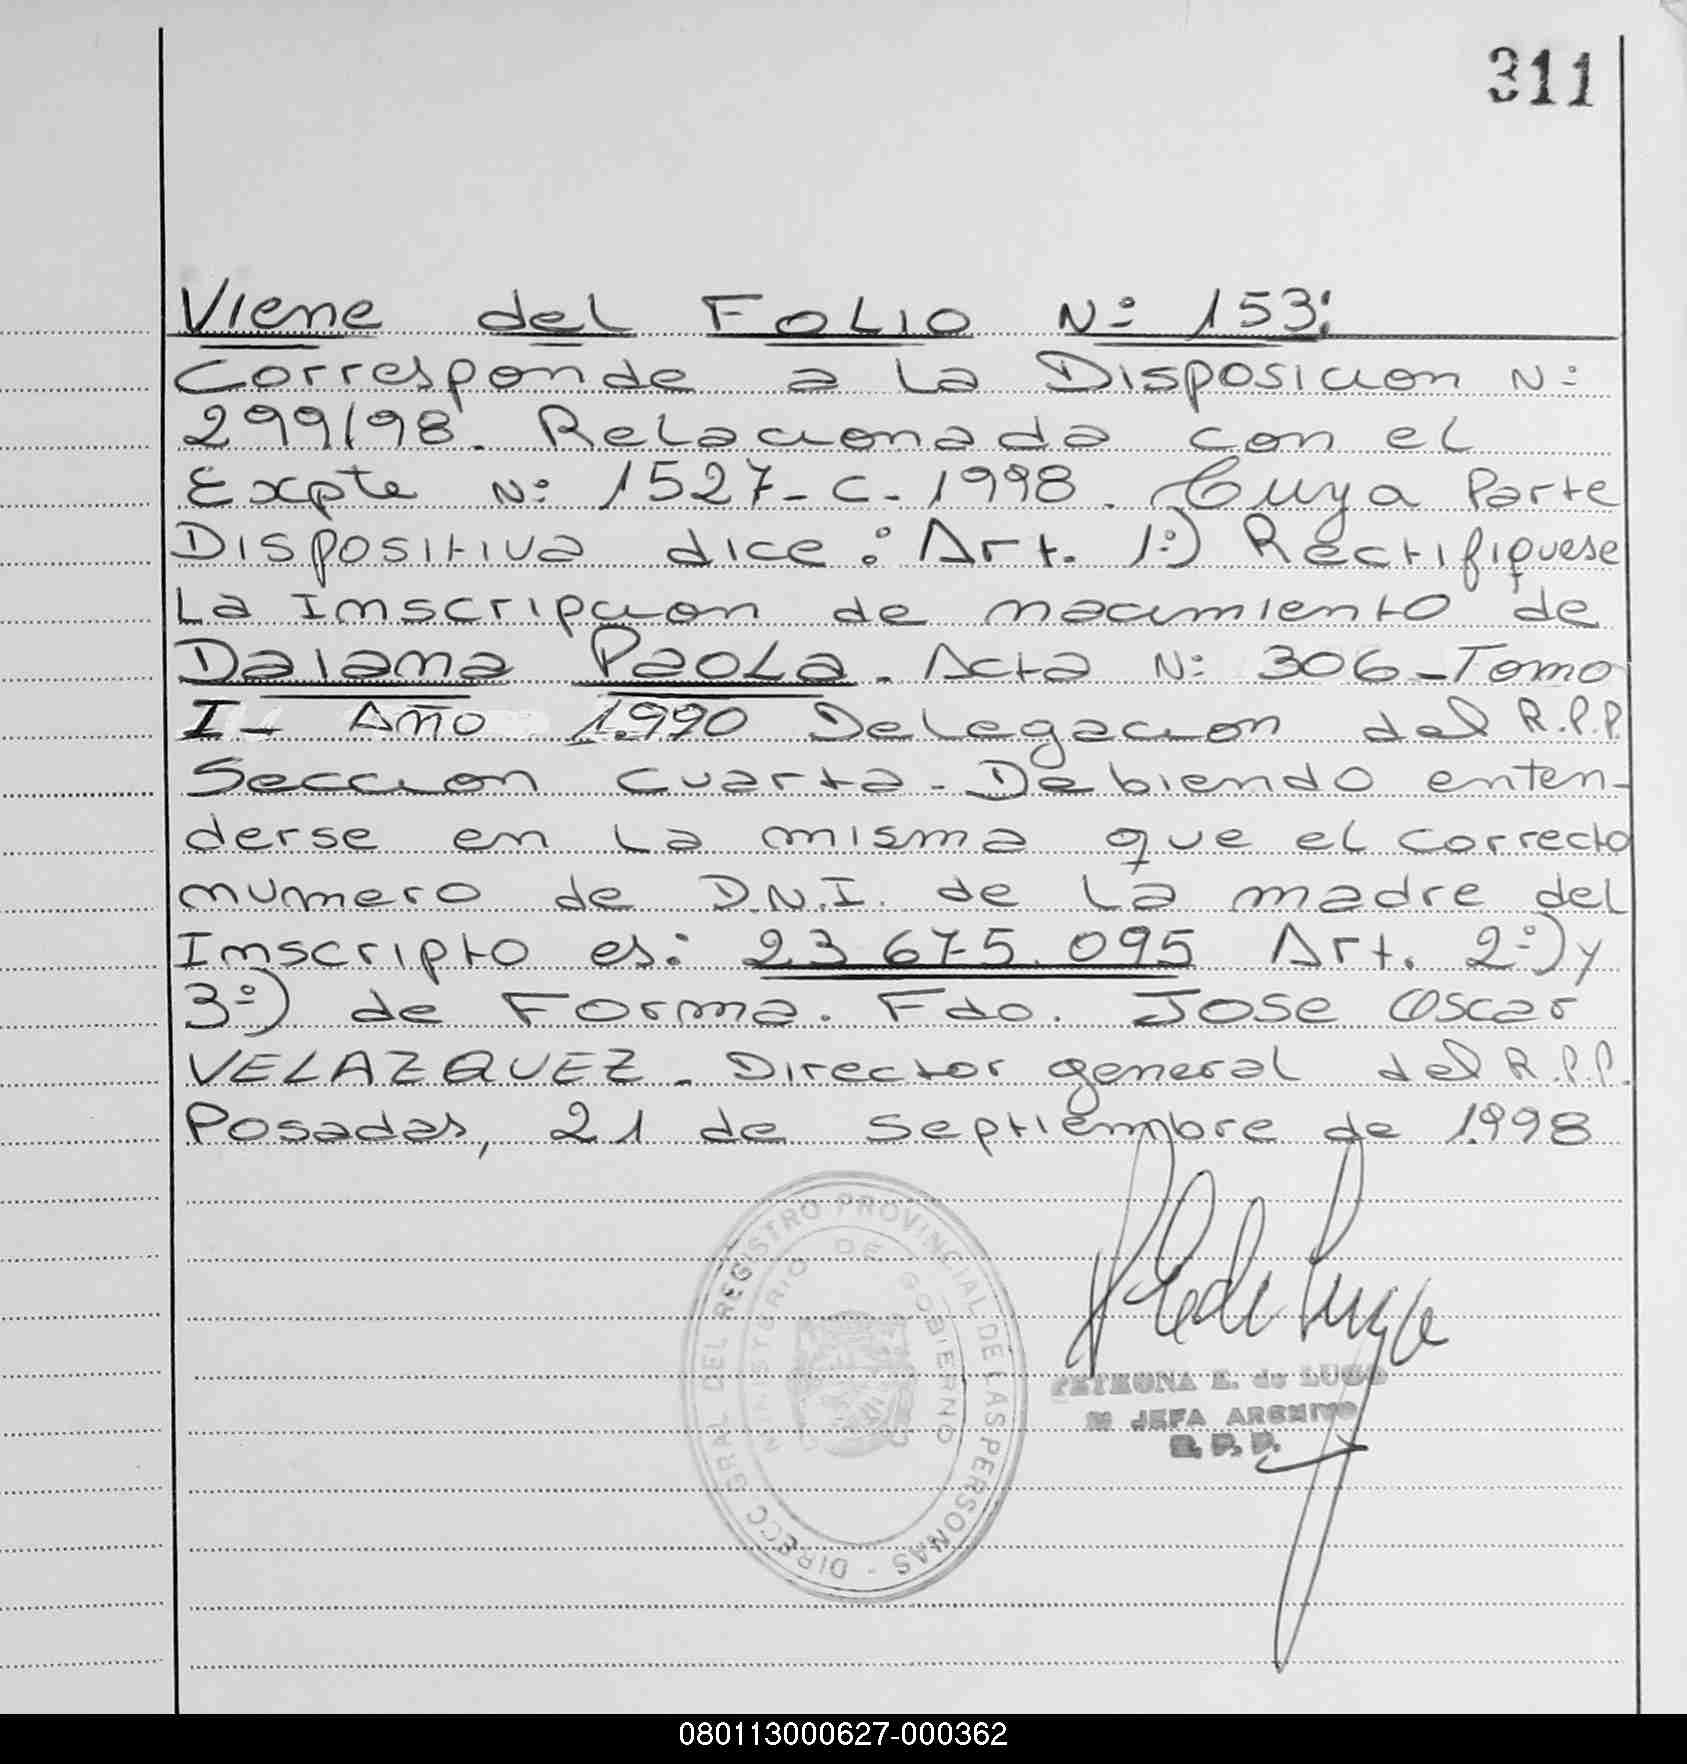 311
Viene del Folio Nº 153:
Corresponde a la Disposicion Nº
299/98. Relacionada con el
Expte Nº 1527-C-1998. Cuya Parte
Dispositiva dice: Art. 1º) Rectifiquese
La Inscripcion de nacimiento de
Daiana Paola. Acta Nº 306-Tomo
I- Año 1.990 Delegacion del R.P.P.
Seccion cuarta. Debiendo enten-
derse en la misma que el correcto
numero de D.N.I. de la madre del
Inscripto es: 23.675.095 Art. 2º) y
3º) de Forma. Fdo. Jose Oscar
VELAZQUEZ. Director general del R.P.P.
Posadas, 21 de septiembre de 1.998
DIRECC GRAL DEL REGISTRO PROVINCIAL DE LAS PERSONAS -
MINISTERIO DE GOBIERNO
PETRONA E. de LUGO
JEFA ARCHIVO
R. P. P.
080113000627-000362